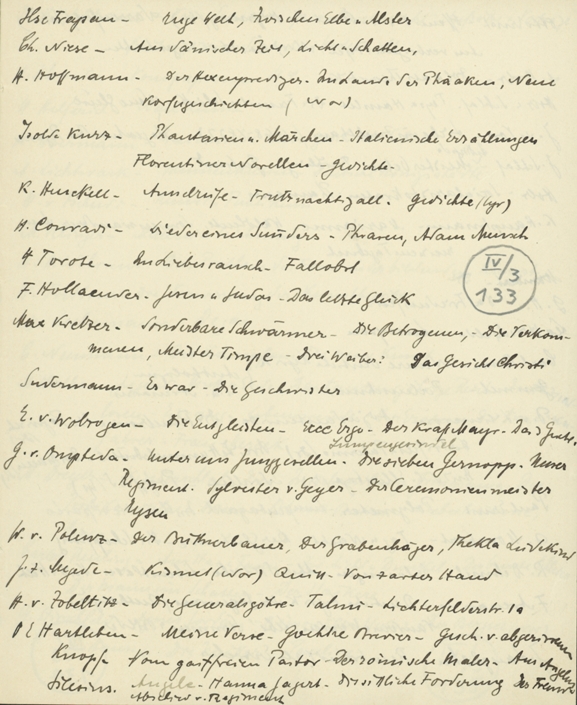 Ilse Frapan - Enge Welt, Zwischen Elbe u Alster
Ch. Niese - Aus dänischer Zeit, Licht u Schatten,
H. Hoffmann - Der Hexenprediger - Im Lande der Phäaken, Neue
Korfugeschichten (Nov)
Isolde Kurz - Phantasien u. Märchen - Italienische Erzählungen
Florentiner Novellen - Gedichte
K. Henckell - Amselrufe - Trutznachtigall. Gedichte (lyr)
H. Conradi - Lieder eines Sünders - Phrasen, Adam Mensch
H Tovote - Im Liebesrausch - Fallobst
F. Hollaender - Jesus u Judas - Das letzte Glück
IV/3
133
Max Kretzer - Sonderbare Schwärmer - Die Betrogenen, Die Verkom-
menen, Meister Timpe - Drei Weiber: Das Gesicht Christi
Sudermann - Es war - Die Geschwister
E. v. Wolzogen - Die Entgleisten - Ecce Ego - Der Kraft Mayr - Das 3 Geschl.
Lumpengesindel
G. v. Ompteda - Unter uns Junggesellen - Die sieben Gernopps - Unser
Regiment. Sylvester v. Geyer - Der Ceremonienmeister
Eysen
W. v. Polenz - Der Büttnerbauer, Der Grabenhäger, Thekla Lüdekind
Kismet (Nov) Quitt - Von zarter Hand
H. v. Zobeltitz - Die Generalsgöhre - Talmi - Lichterfelderstr. 1a
O E Hartleben - Meine Verse - Goethe Brevier - Gesch. v. abgerissenen
Knopfe Vom gastfreien Pastor - Der römische Maler - Aus Angelus
Silesius. Angele - Hanna Jagert - Die sittliche Forderung Der Fremde
Abschied v. Regiment